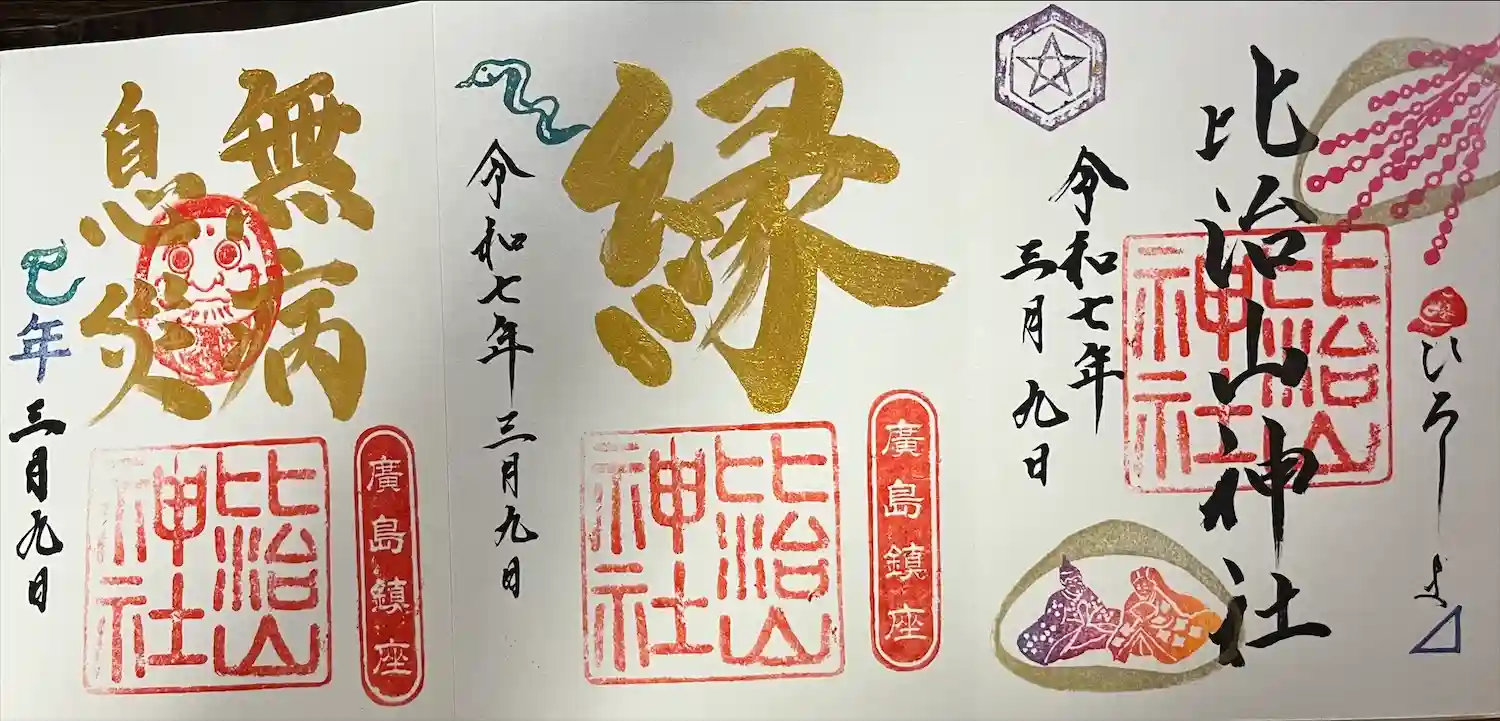 ひろしま
比治山神社
比治山
神社
令和七年
三月九日
縁
令和七年三月九日
廣島鎮座
比治山
神社
無病
息災
巳年三月九日
廣島鎮座
比治山
神社